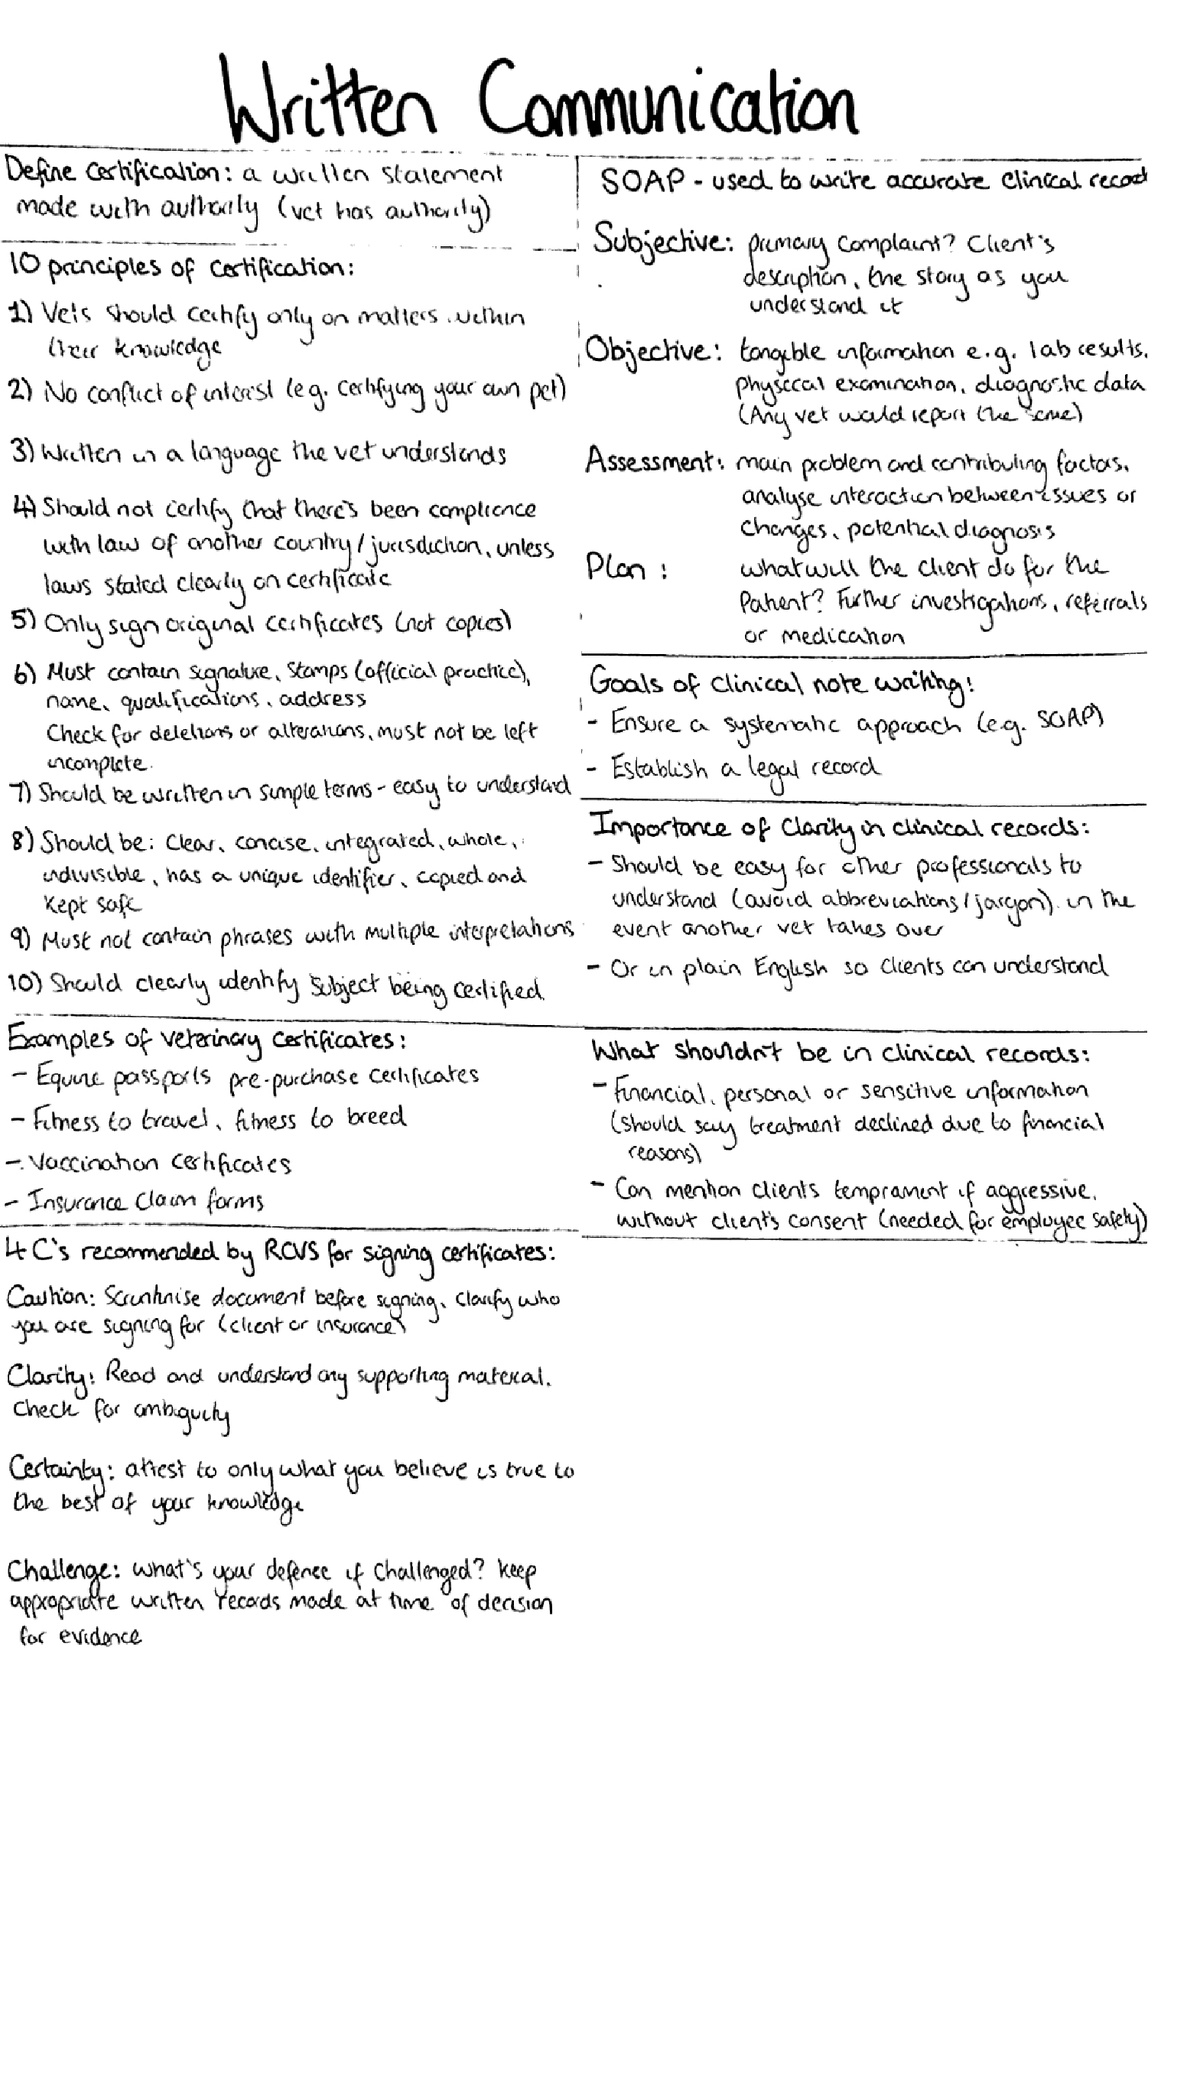 Written Communication
Define Certification: a written statement
made with authority (vet has authority)
10 principles of certification:
1) Vets should certify only on matters within
their knowledge
2) No conflict of interest (e.g. certifying your own pet)
3) Written in a language the vet understands
4) Should not certify that there's been complience
with law of another country/jurisdiction, unless
laws stated clearly on certificate
5) Only sign original certificates (not copies)
6) Must contain signature, stamps (official practice),
name, qualifications, address
Check for deletions or alterations, must not be left
incomplete.
7) Should be written in simple terms - easy to understand
8) Should be: Clear, concise, integrated, whole,
indivisible, has a unique identifier, copied and
kept safe
9) Must not contain phrases with multiple interpretations
10) Should clearly identify subject being certified.
Examples of veterinary certificates:
- Equine passports pre-purchase certificates
- Fitness to travel, fitness to breed
- Vaccination certificates
- Insurance claim forms
4 C's recommended by RCVS for signing certificates:
Caution: Scruntinise document before signing, clarify who
you are signing for (client or insurance)
Clarity: Read and understand any supporting material.
Check for ambiguity
Certainty: attest to only what you believe is true to
the best of your knowledge
Challenge: what's your defence if challenged? keep
appropriate written records made at time of decision
for evidence
SOAP - used to write accurate clinical record
Subjective: primary complaint? Client's
description, the story as you
understand it
Objective: tangible information e.g. lab results,
physical examination, diagnostic data
(Any vet would report the same)
Assessment: main problem and contributing factors,
analyse interaction between issues or
changes, potential diagnosis
Plan: what will the client do for the
patient? Further investigations, referrals
or medication
Goals of clinical note writing:
- Ensure a systematic approach (e.g. SOAP)
- Establish a legal record
Importance of clarity in clinical records:
- Should be easy for other professionals to
understand (avoid abbreviations/jargon) in the
event another vet takes over
- Or in plain English so clients can understand
What shouldn't be in clinical records:
- Financial, personal or sensitive information
(should say treatment declined due to financial
reasons)
- Can mention clients temprament if aggressive,
without client's consent (needed for employee safety)